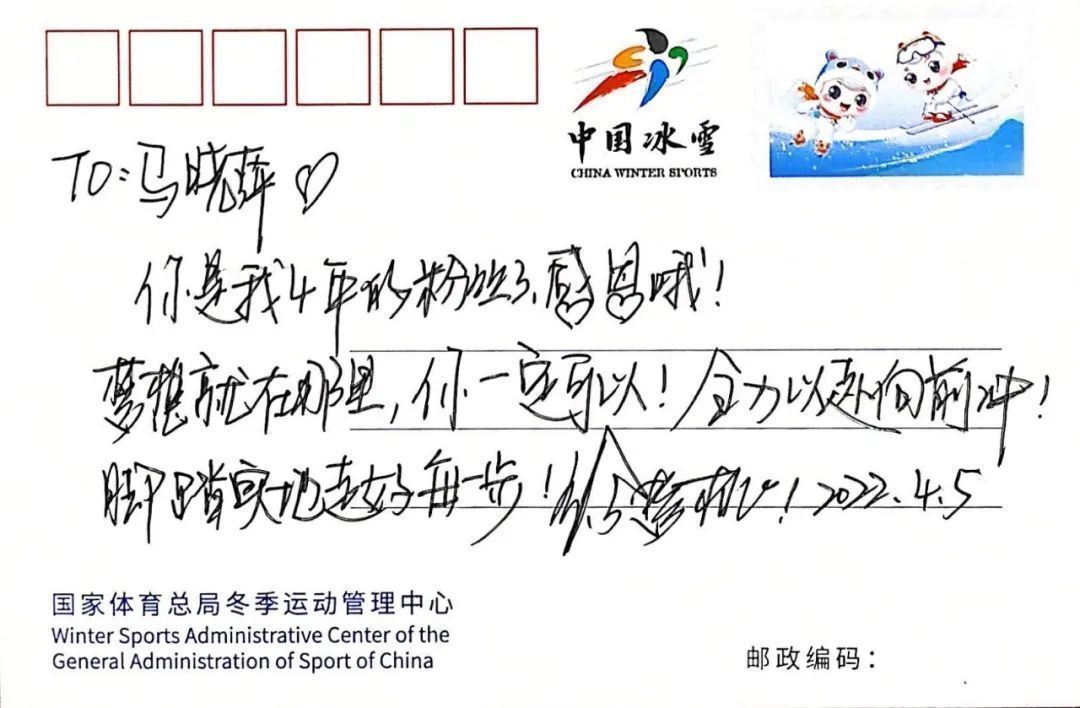 中国冰雪
CHINA WINTER SPORTS
TO:马晓萍♡
你是我4年的粉丝了、感恩哦!
梦想就在那里,你一定可以!全力以赴向前冲!
脚踏实地走好每一步! 2022.4.5
国家体育总局冬季运动管理中心
Winter Sports Administrative Center of the
General Administration of Sport of China
邮政编码: